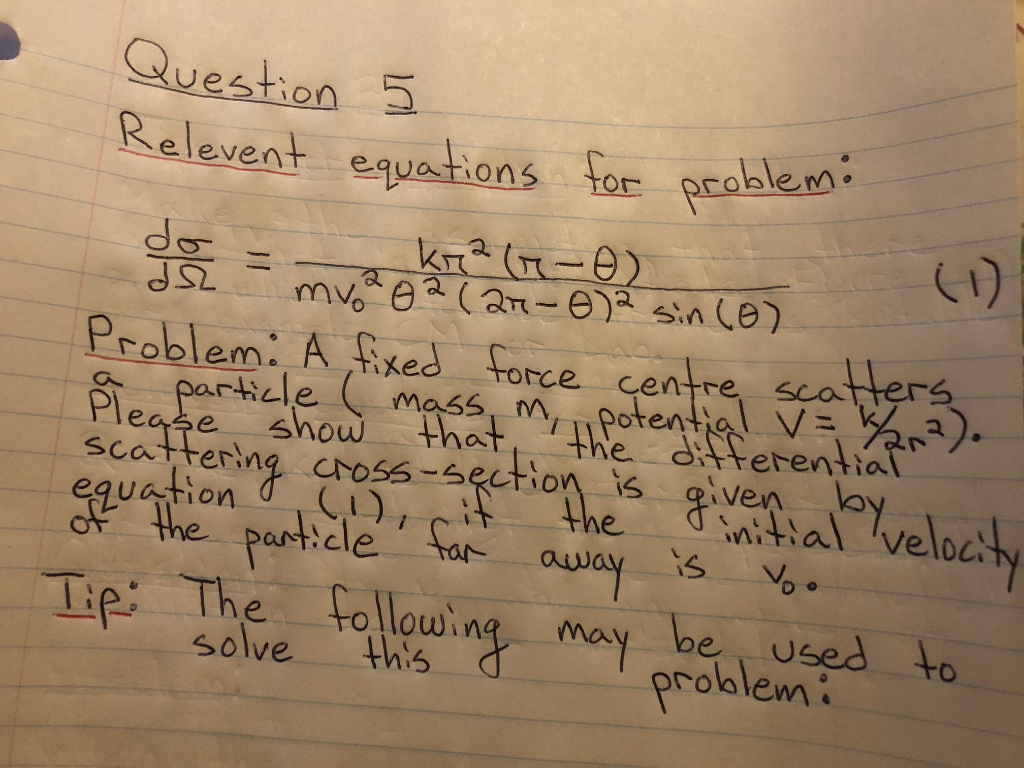 Question 5
Relevent equations for problem:
dσ/dΩ = kπ²(π-θ) / mv₀²θ²(2π-θ)² sin(θ) (1)
Problem: A fixed force centre scatters
a particle (mass, m, potential V = k/2r²).
Please show that, the differential
scattering cross-section is given by
equation (1), if the initial velocity
of the particle far away is v₀.
Tip: The following may be used to
solve this problem: